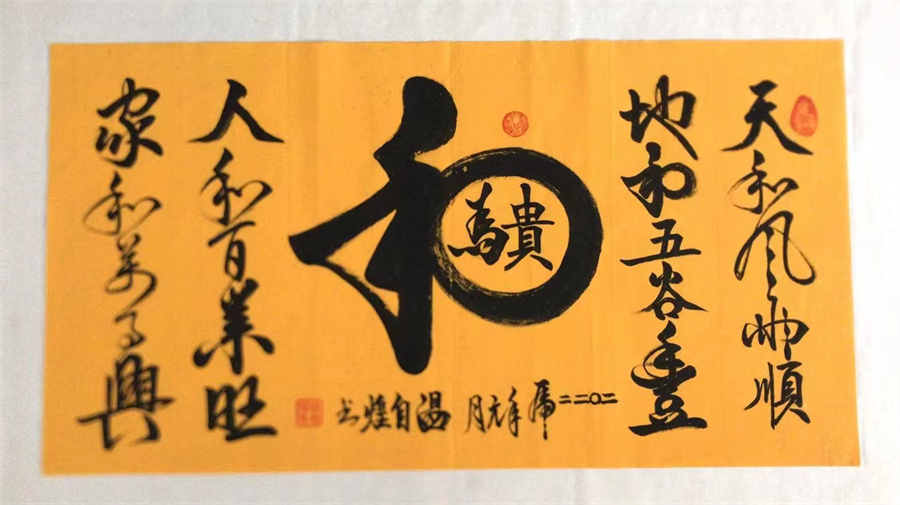 天和风雨順
地和五谷豐
和
馬貴
二〇二二虎年元月 温自煌书
人和百業旺
家和萬事興